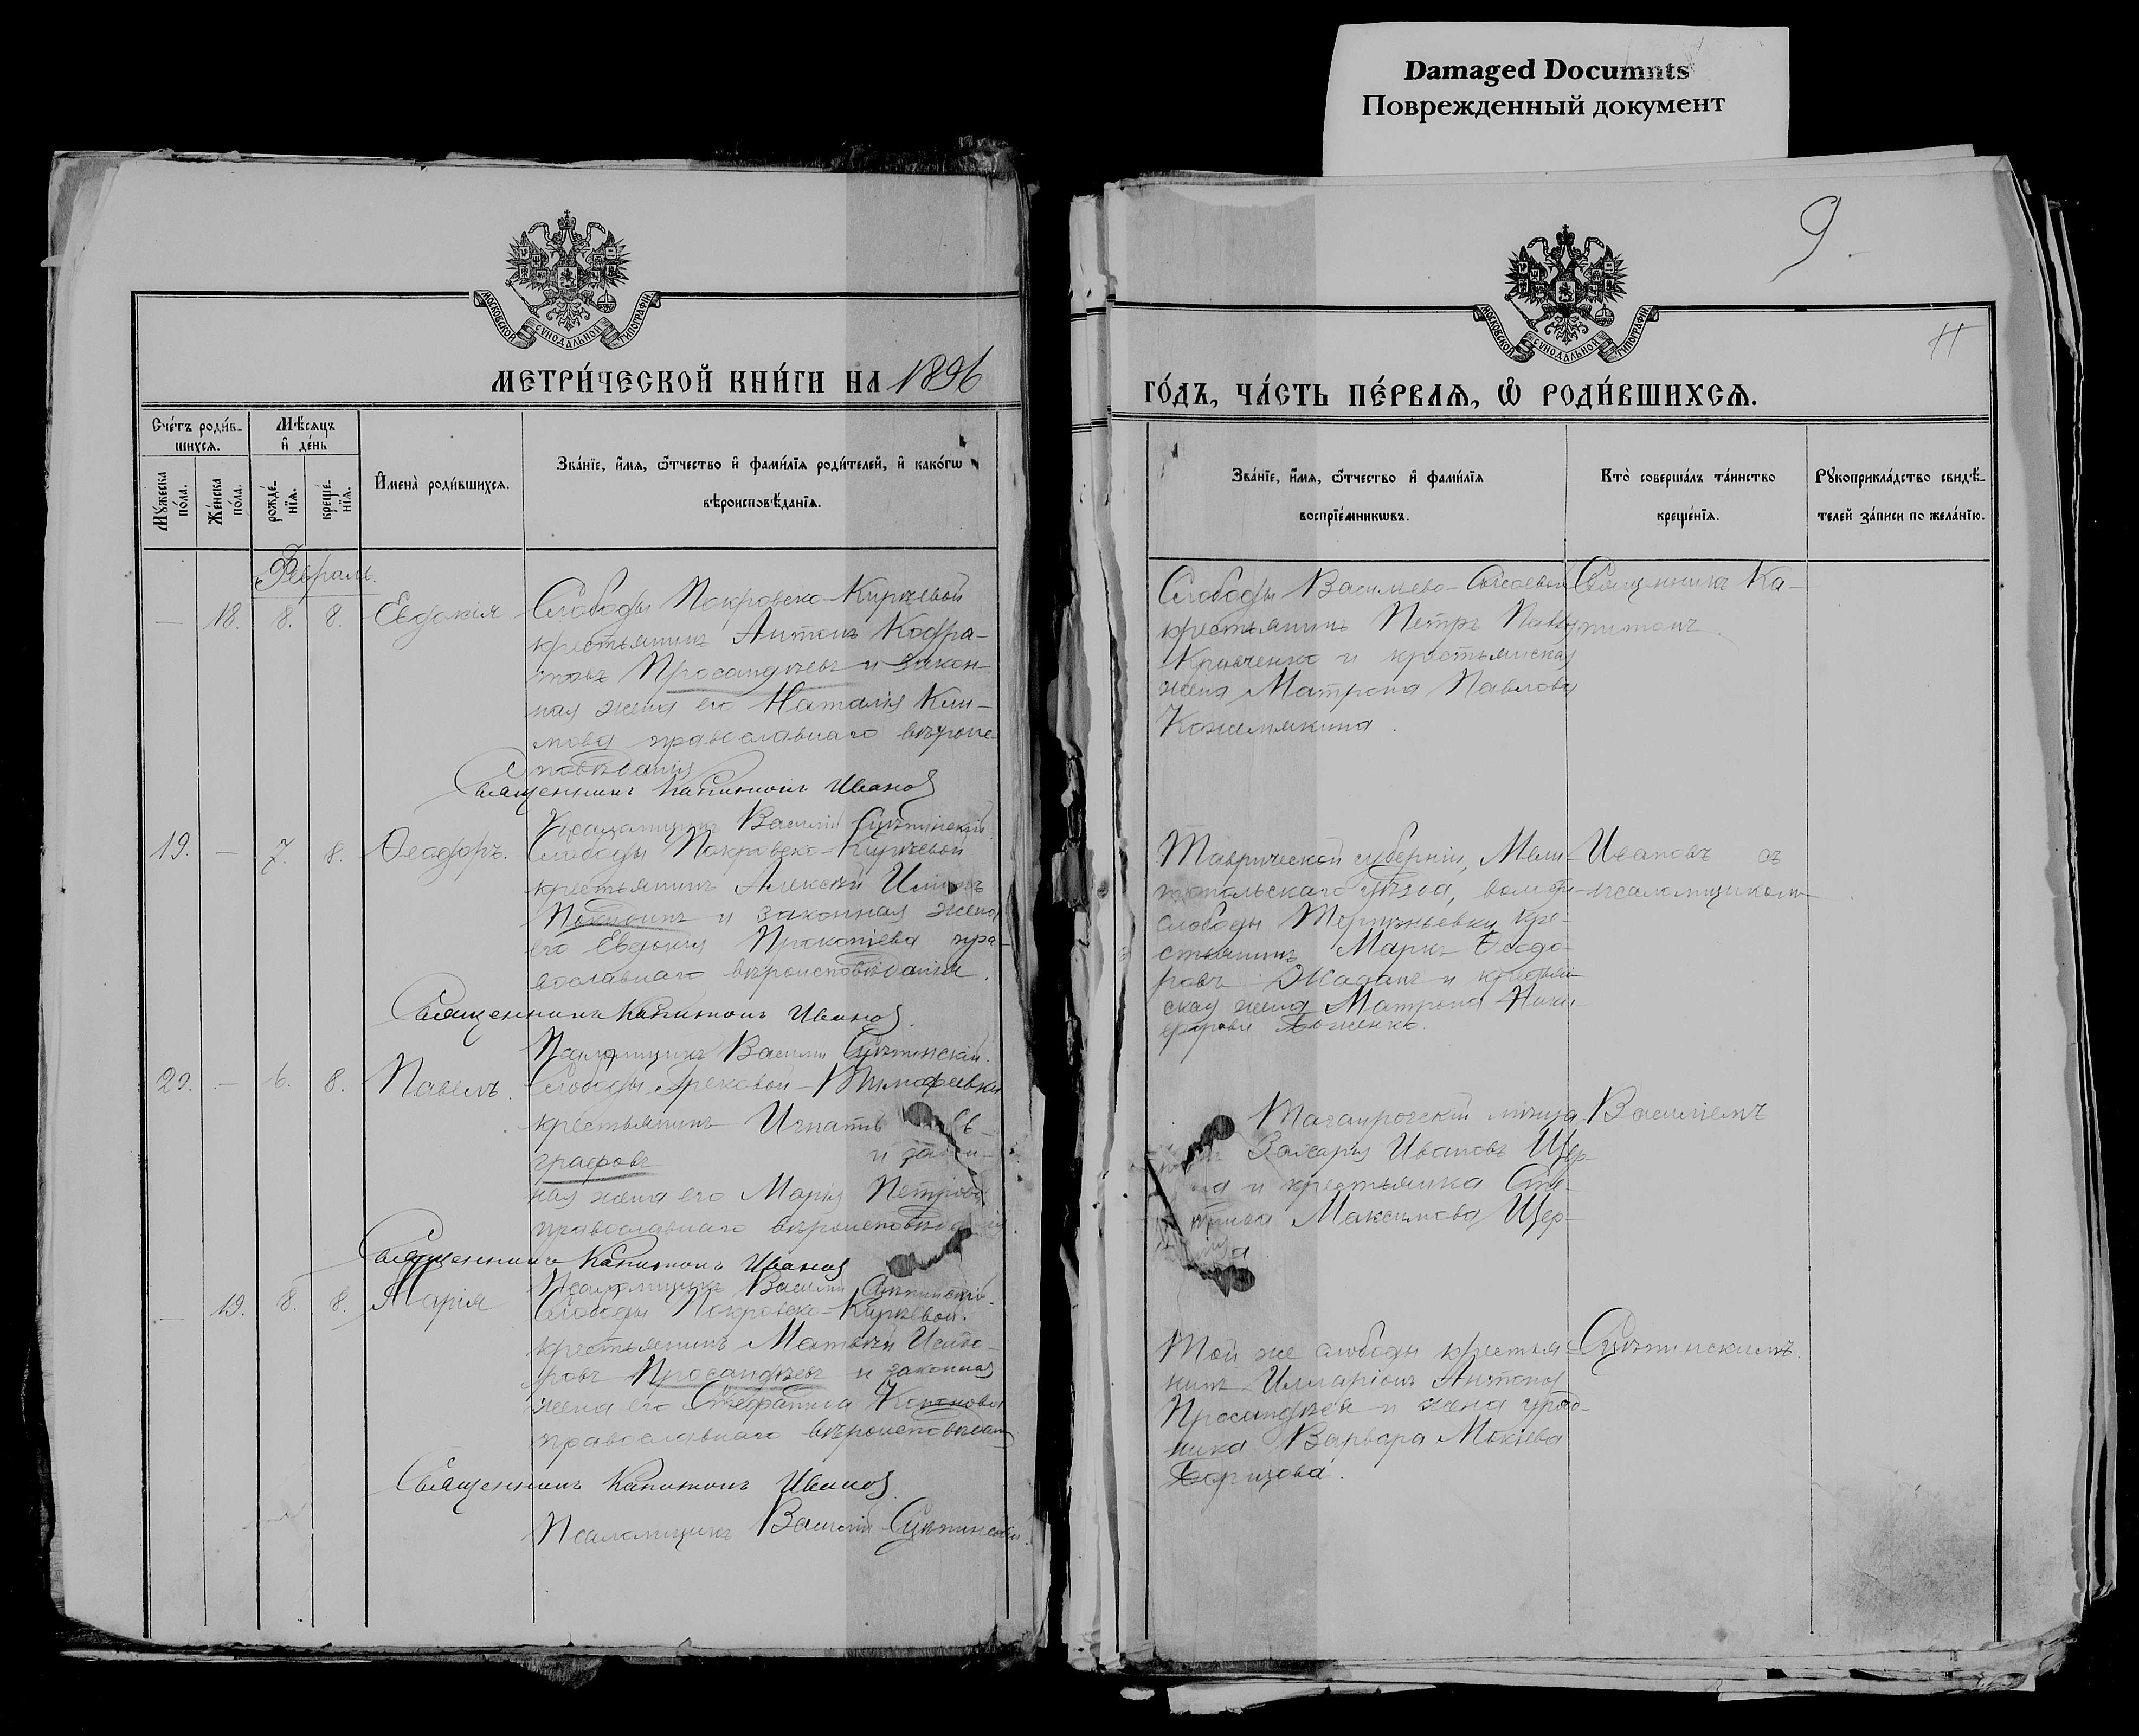 Damaged Documnts
Поврежденный документ
МОСКОВСКОЙ СѴНОДАЛЬНОЙ ТИПОГРАФІИ
МЕТРИ́ЧЕСКОЙ КНИ́ГИ НА 1896
Сче́тъ роди́в-
шихся.
Мѣ́сяцъ
и҆ де́нь
Мꙋ́жеска
по́ла.
Же́нска
по́ла.
рожде́-
нїѧ.
креще́-
нїѧ.
И҆мена̀ роди́вшихсѧ.
Зва́нїе, и҆́мѧ, ѻ҆́тчество и҆ фами́лїѧ роди́телей, и҆ како́гѡ
вѣроисповѣ́данїѧ.
Февраль.
— 18. 8. 8. Евдокія
Слободы Покровско-Кирѣевой
крестьянинъ Антонъ Кодра-
товъ Просандѣевъ и закон-
ная жена его Наталія Кли-
мова православнаго вѣроис-
повѣданія
Священникъ Капитонъ Иванов
Псаломщикъ Василій Сцепинскій
19. — 7. 8. Ѳеодоръ.
Слободы Покровско-Кирѣевой
крестьянинъ Алексѣй Ильинъ
и законная жена
его Евдокія Прокопіева пра-
вославнаго вѣроисповѣданія.
Священникъ Капитонъ Иванов.
Псаломщикъ Василій Сцепинскій.
20. — 6. 8. Павелъ.
Слободы Грековой-Тимофеевки
крестьянинъ Игнатъ
графовъ и закон-
ная жена его Марія Петрова
православнаго вѣроисповѣданія.
Священникъ Капитонъ Иванов
Псаломщикъ Василій Сцепинскій.
— 19. 8. 8. Марія
Слободы Покровско-Кирѣевой.
крестьянинъ Матвѣй Исидо-
ровъ Просандѣевъ и законная
жена его Стефанида Кононова
православнаго вѣроисповѣдан
Священникъ Капитонъ Иванов.
Псаломщикъ Василій Сцепинскій.
9.
11
МОСКОВСКОЙ СѴНОДАЛЬНОЙ ТИПОГРАФІИ
ГО́ДЪ, ЧА́СТЬ ПЕ́РВАѦ, Ѡ҆ РОДИ́ВШИХСѦ.
Зва́нїе, и҆́мѧ, ѻ҆́тчество и҆ фами́лїѧ
воспрїе́мникѡвъ.
Кто̀ соверша́лъ та́инство
креще́нїѧ.
Рꙋкоприкла́дство свидѣ́-
телей за́писи по жела́нїю.
Слободы Васильево- Священникъ Ка-
крестьянинъ Петръ Павл питонъ
Кравченко и крестьянская
жена Матрона Павлова
Кожемякина.
Таврической губерніи, Мели- Ивановъ съ
топольскаго уѣзда, псаломщикомъ
слободы кре-
стьянинъ Маркъ Ѳеодо-
ровъ Жадан и крестьян-
ская жена Матрона Ники-
форова Боженко.
Таганрогскій мѣща- Василіемъ
Захарія Ивановъ Щер-
на и крестьянка
Максимова Щер-
Той же слободы крестья- Сцепинскимъ.
нинъ Илларіонъ Антонов
Просандѣев и жена уряд-
ника Варвара Мокіева
Борцова.